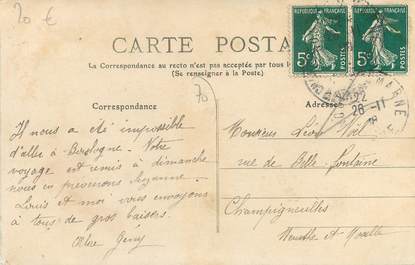 20 €
CARTE POSTA
La Correspondance au recto n'est pas acceptée par tous l
(Se renseigner à la Poste)
RÉPUBLIQUE FRANÇAISE
RÉPUBLIQUE FRANÇAISE
5c POSTES
5c POSTES
MARNE
22
26 - 11
70
Correspondance
Adresse
Il nous a été impossible
d'aller à Boulogne. Notre
voyage est remis à dimanche
nous en prévenons Suzanne.
Louis et moi vous envoyons
à tous de gros baisers.
Monsieur Léon
rue de Belle-fontaine
Champigneulles
Meurthe et Moselle